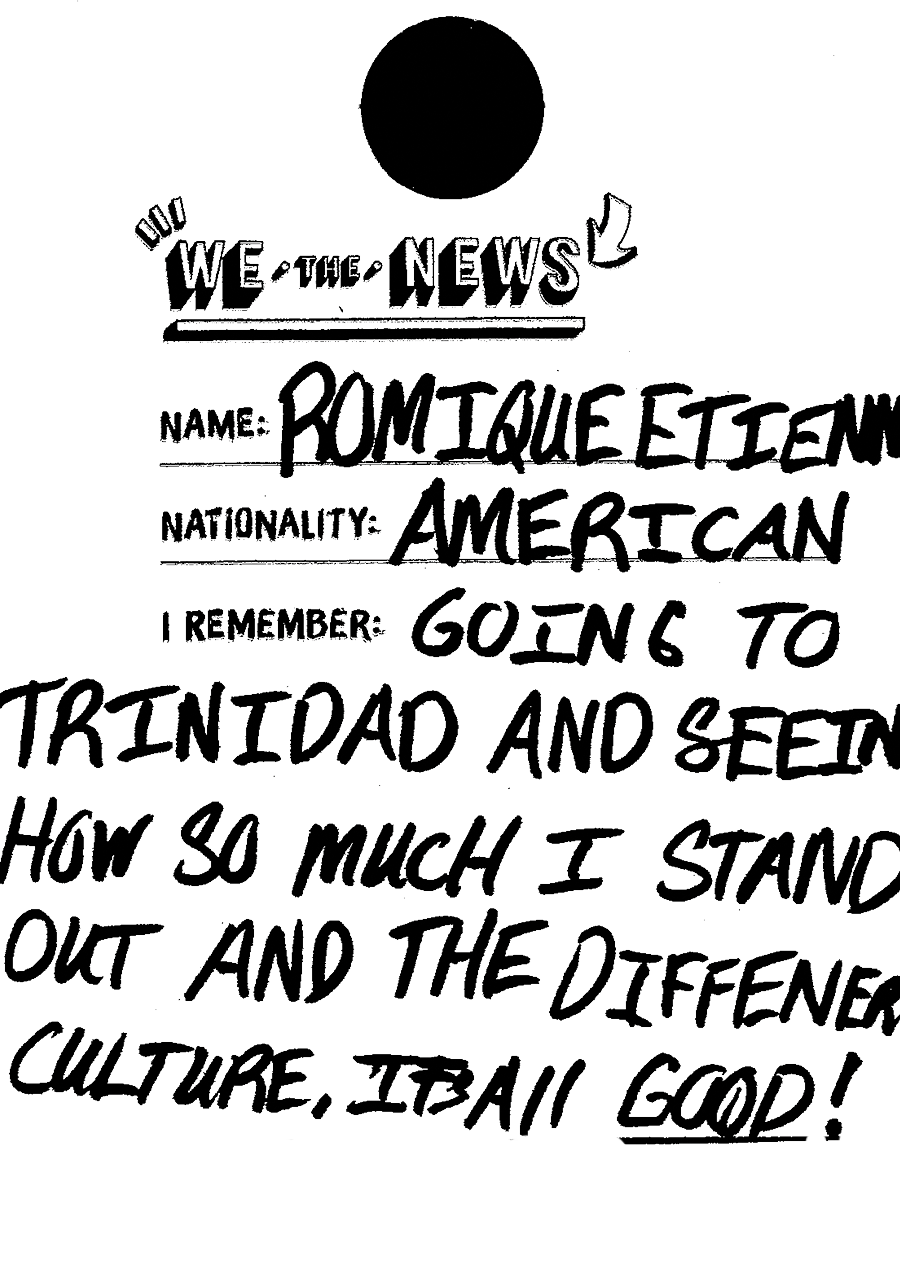 WE THE NEWS
NAME: ROMIQUE ETIENN
NATIONALITY: AMERICAN
I REMEMBER: GOING TO
TRINIDAD AND SEEIN
HOW SO MUCH I STAND
OUT AND THE DIFFENER
CULTURE, ITS All GOOD!